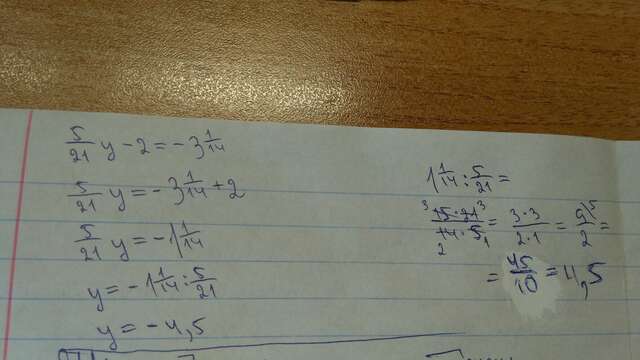 5/21 y - 2 = - 3 1/14
5/21 y = - 3 1/14 + 2
5/21 y = - 1 1/14
y = - 1 1/14 : 5/21
y = - 4,5
1 1/14 : 5/21 =
15 · 21 / 14 · 5 = 3 · 3 / 2 · 1 = 9 \5 / 2 =
= 45/10 = 4,5